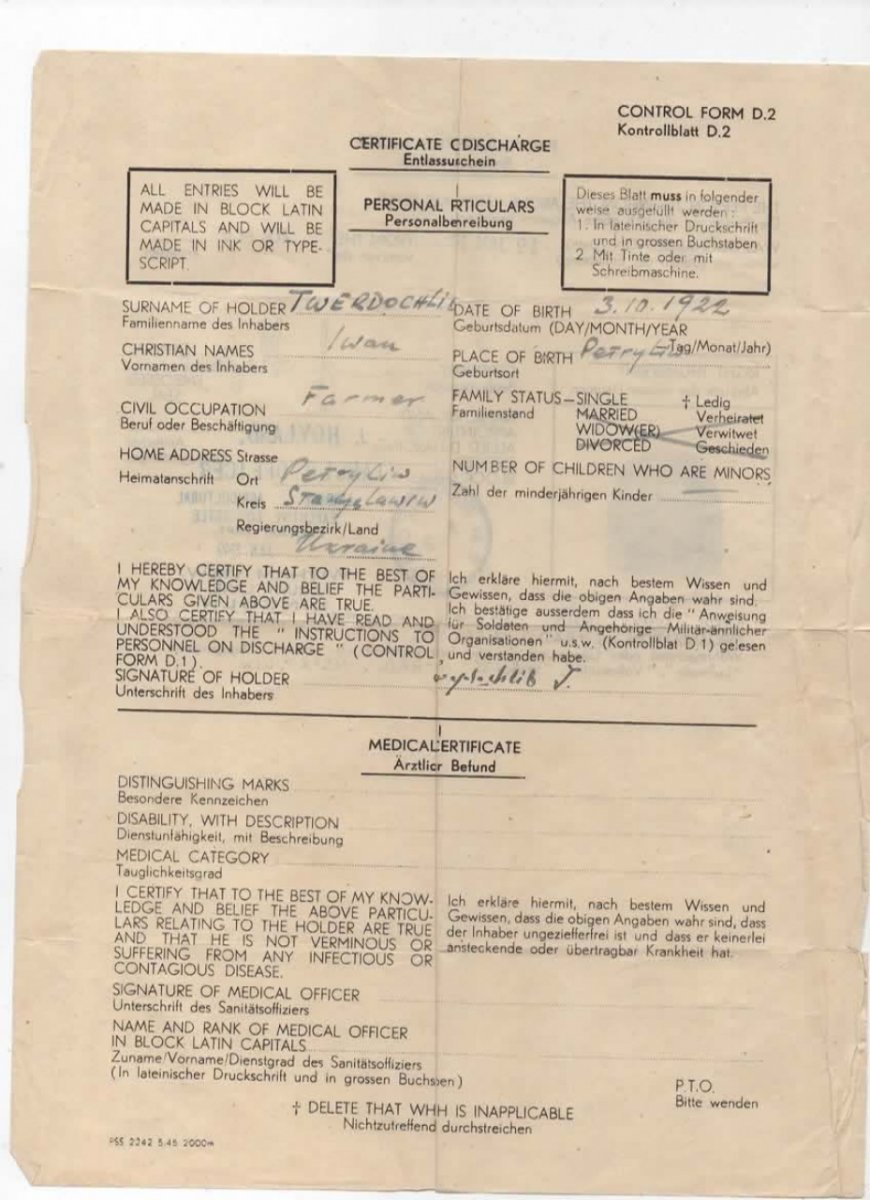 CONTROL FORM D.2
Kontrollblatt D.2
CERTIFICATE C DISCHARGE
Entlassuschein
ALL ENTRIES WILL BE
MADE IN BLOCK LATIN
CAPITALS AND WILL BE
MADE IN INK OR TYPE-
SCRIPT.
PERSONAL RTICULARS
Personalbereibung
Dieses Blatt muss in folgender
weise ausgefüllt werden :
1. In lateinischer Druckschrift
und in grossen Buchstaben
2. Mit Tinte oder mit
Schreibmaschine.
SURNAME OF HOLDER TWERDOCHLIB
Familienname des Inhabers
DATE OF BIRTH 3.10.1922
Geburtsdatum (DAY/MONTH/YEAR
Tag/Monat/Jahr)
CHRISTIAN NAMES Iwan
Vornamen des Inhabers
PLACE OF BIRTH
Geburtsort
CIVIL OCCUPATION Farmer
Beruf oder Beschäftigung
FAMILY STATUS—SINGLE † Ledig
Familienstand MARRIED Verheiratet
WIDOW(ER) Verwitwet
DIVORCED Geschieden
HOME ADDRESS Strasse
Heimatanschrift Ort Petryliw
Kreis Stanyslawiw
Regierungsbezirk/Land
Ukraine
NUMBER OF CHILDREN WHO ARE MINORS
Zahl der minderjährigen Kinder —
I HEREBY CERTIFY THAT TO THE BEST OF
MY KNOWLEDGE AND BELIEF THE PARTI-
CULARS GIVEN ABOVE ARE TRUE.
I ALSO CERTIFY THAT I HAVE READ AND
UNDERSTOOD THE " INSTRUCTIONS TO
PERSONNEL ON DISCHARGE " (CONTROL
FORM D.1).
Ich erkläre hiermit, nach bestem Wissen und
Gewissen, dass die obigen Angaben wahr sind.
Ich bestätige ausserdem dass ich die " Anweisung
für Soldaten und Angehörige Militär-ännlicher
Organisationen " u.s.w. (Kontrollblat D.1) gelesen
und verstanden habe.
SIGNATURE OF HOLDER
Unterschrift des Inhabers
MEDICAL ERTIFICATE
Ärztlicr Befund
DISTINGUISHING MARKS
Besondere Kennzeichen
DISABILITY, WITH DESCRIPTION
Dienstunfähigkeit, mit Beschreibung
MEDICAL CATEGORY
Tauglichkeitsgrad
I CERTIFY THAT TO THE BEST OF MY KNOW-
LEDGE AND BELIEF THE ABOVE PARTICU-
LARS RELATING TO THE HOLDER ARE TRUE
AND THAT HE IS NOT VERMINOUS OR
SUFFERING FROM ANY INFECTIOUS OR
CONTAGIOUS DISEASE.
Ich erkläre hiermit, nach bestem Wissen und
Gewissen, dass die obigen Angaben wahr sind, dass
der Inhaber ungeziefferfrei ist und dass er keinerlei
ansteckende oder übertragbar Krankheit hat.
SIGNATURE OF MEDICAL OFFICER
Unterschrift des Sanitätsoffiziers
NAME AND RANK OF MEDICAL OFFICER
IN BLOCK LATIN CAPITALS
Zuname/Vorname/Dienstgrad des Sanitätsoffiziers
(In lateinischer Druckschrift und in grossen Buchsben)
P.T.O.
Bitte wenden
† DELETE THAT WHH IS INAPPLICABLE
Nichtzutreffend durchstreichen
PSS 2242 5.45 2000m